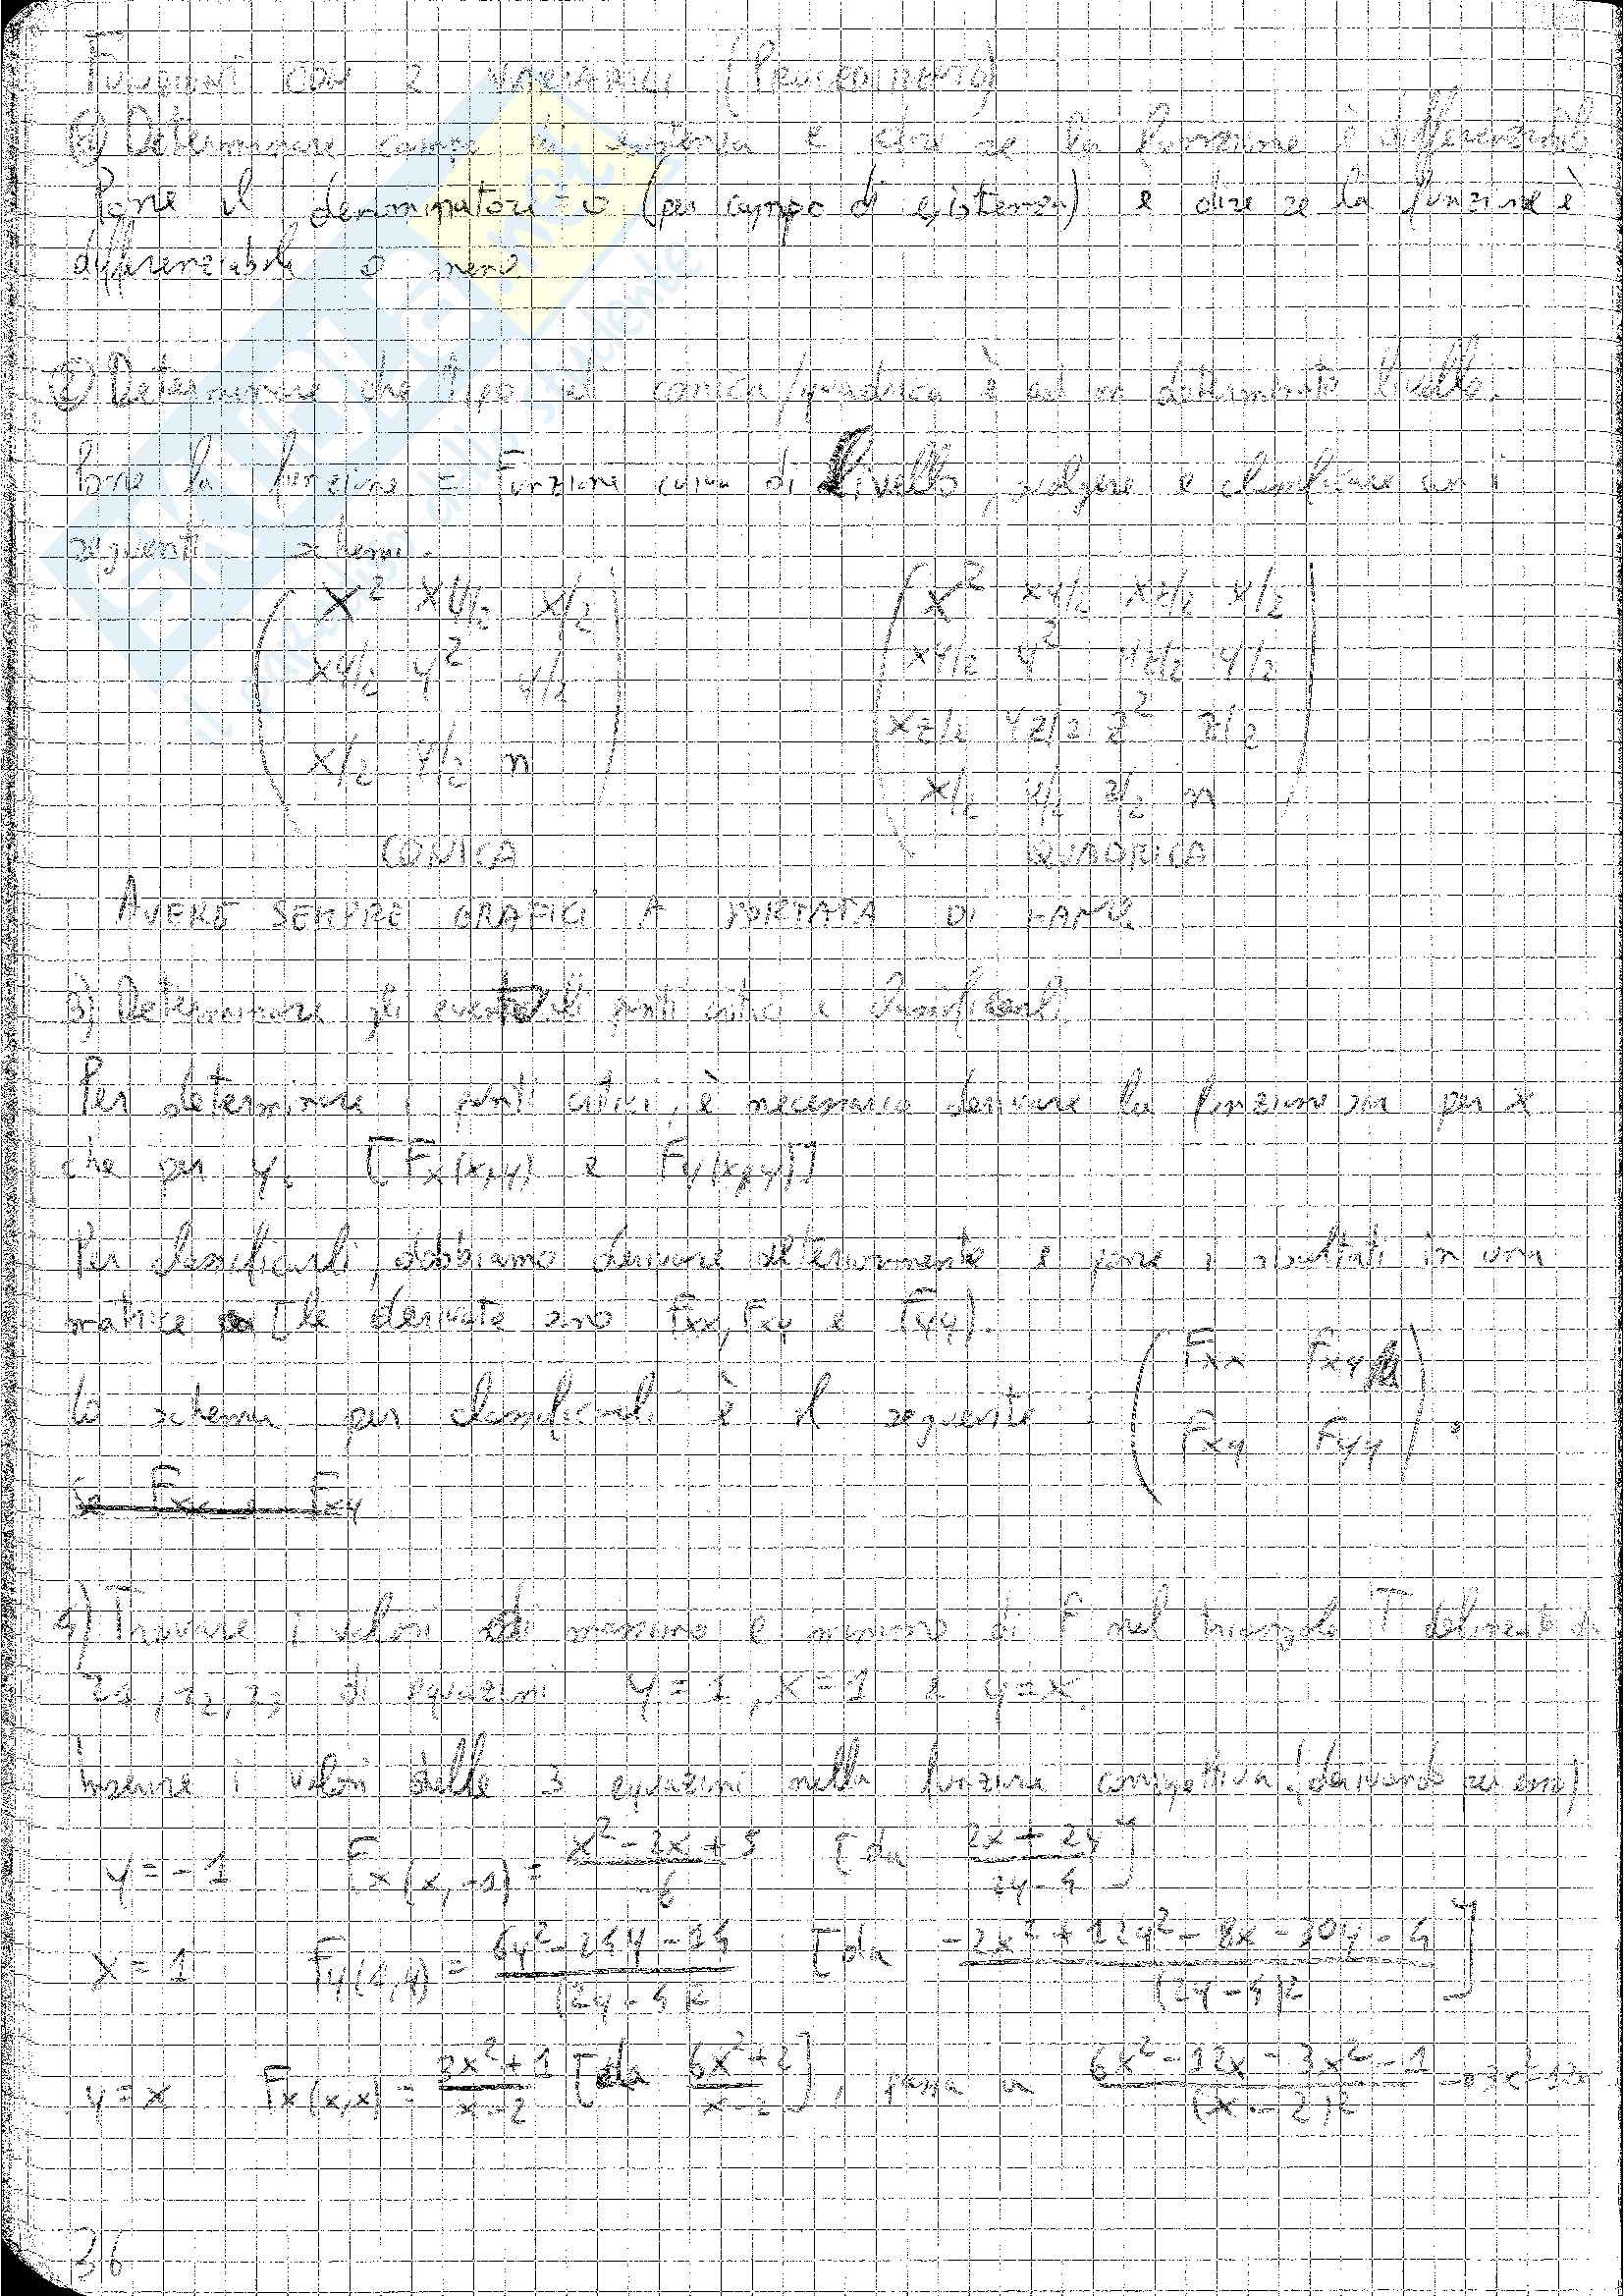 FUNZIONI CON 2 VARIABILI (PROCEDIMENTO)
Determinare campo di esistenza e dire se la funzione è differenziabile
Porre il denominatore = 0 (per campo di esistenza) e dire se la funzione è
differenziabile o meno
2) Determinare che tipo di conica/quadrica è ad un determinato livello.
Porre la funzione = Funzione curva di livello, svolgere e classificare con i
seguenti schemi.
x² xy/2 x/2
xy/2 y² y/2
x/2 y/2 n
CONICA
x² xy/2 xz/2 x/2
xy/2 y² yz/2 y/2
xz/2 yz/2 z² z/2
x/2 y/2 z/2 n
QUADRICA
AVERE SEMPRE GRAFICI A PORTATA DI MANO
3) Determinare gli eventuali punti critici e classificarli
Per determinare i punti critici, è necessario derivare la funzione sia per x
che per y. [Fx(x,y) e Fy(x,y)]
Per classificarli, dobbiamo derivare ulteriormente e porre i risultati in una
matrice [le derivate sono Fxx, Fxy e Fyy).
Lo schema per classificarli è il seguente : ( Fxx Fxy
Fxy Fyy )
Se Fxx Fxy
4) Trovare i valori di massimo e minimo di F nel triangolo T delineato
di equazioni y=1, x=1 e y=x.
Inserire i valori delle 3 equazioni nella funzione (derivando
y=-1 Fx(x,-1) = [da
x=1 Fy(1,y) = [da
y=x Fx(x,x) = 3x²+1 / x-2 [da 6x²+2 / x-2], passa a 6x²-12x-3x²-1 / (x-2)²
36